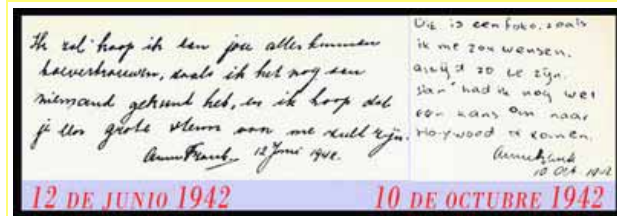 Ik zal hoop ik aan jou alles kunnen
toevertrouwen, zoals ik het nog aan
niemand gekund heb, en ik hoop dat
je een grote steun voor me zult zijn.
Anne Frank. 12 Juni 1942.
Dit is een foto, zoals
ik me zou wensen,
altijd zo te zijn.
Dan had ik nog wel
een kans om naar
Holywood te komen.
Annefrank
10 Oct. 1942
12 DE JUNIO 1942
10 DE OCTUBRE 1942